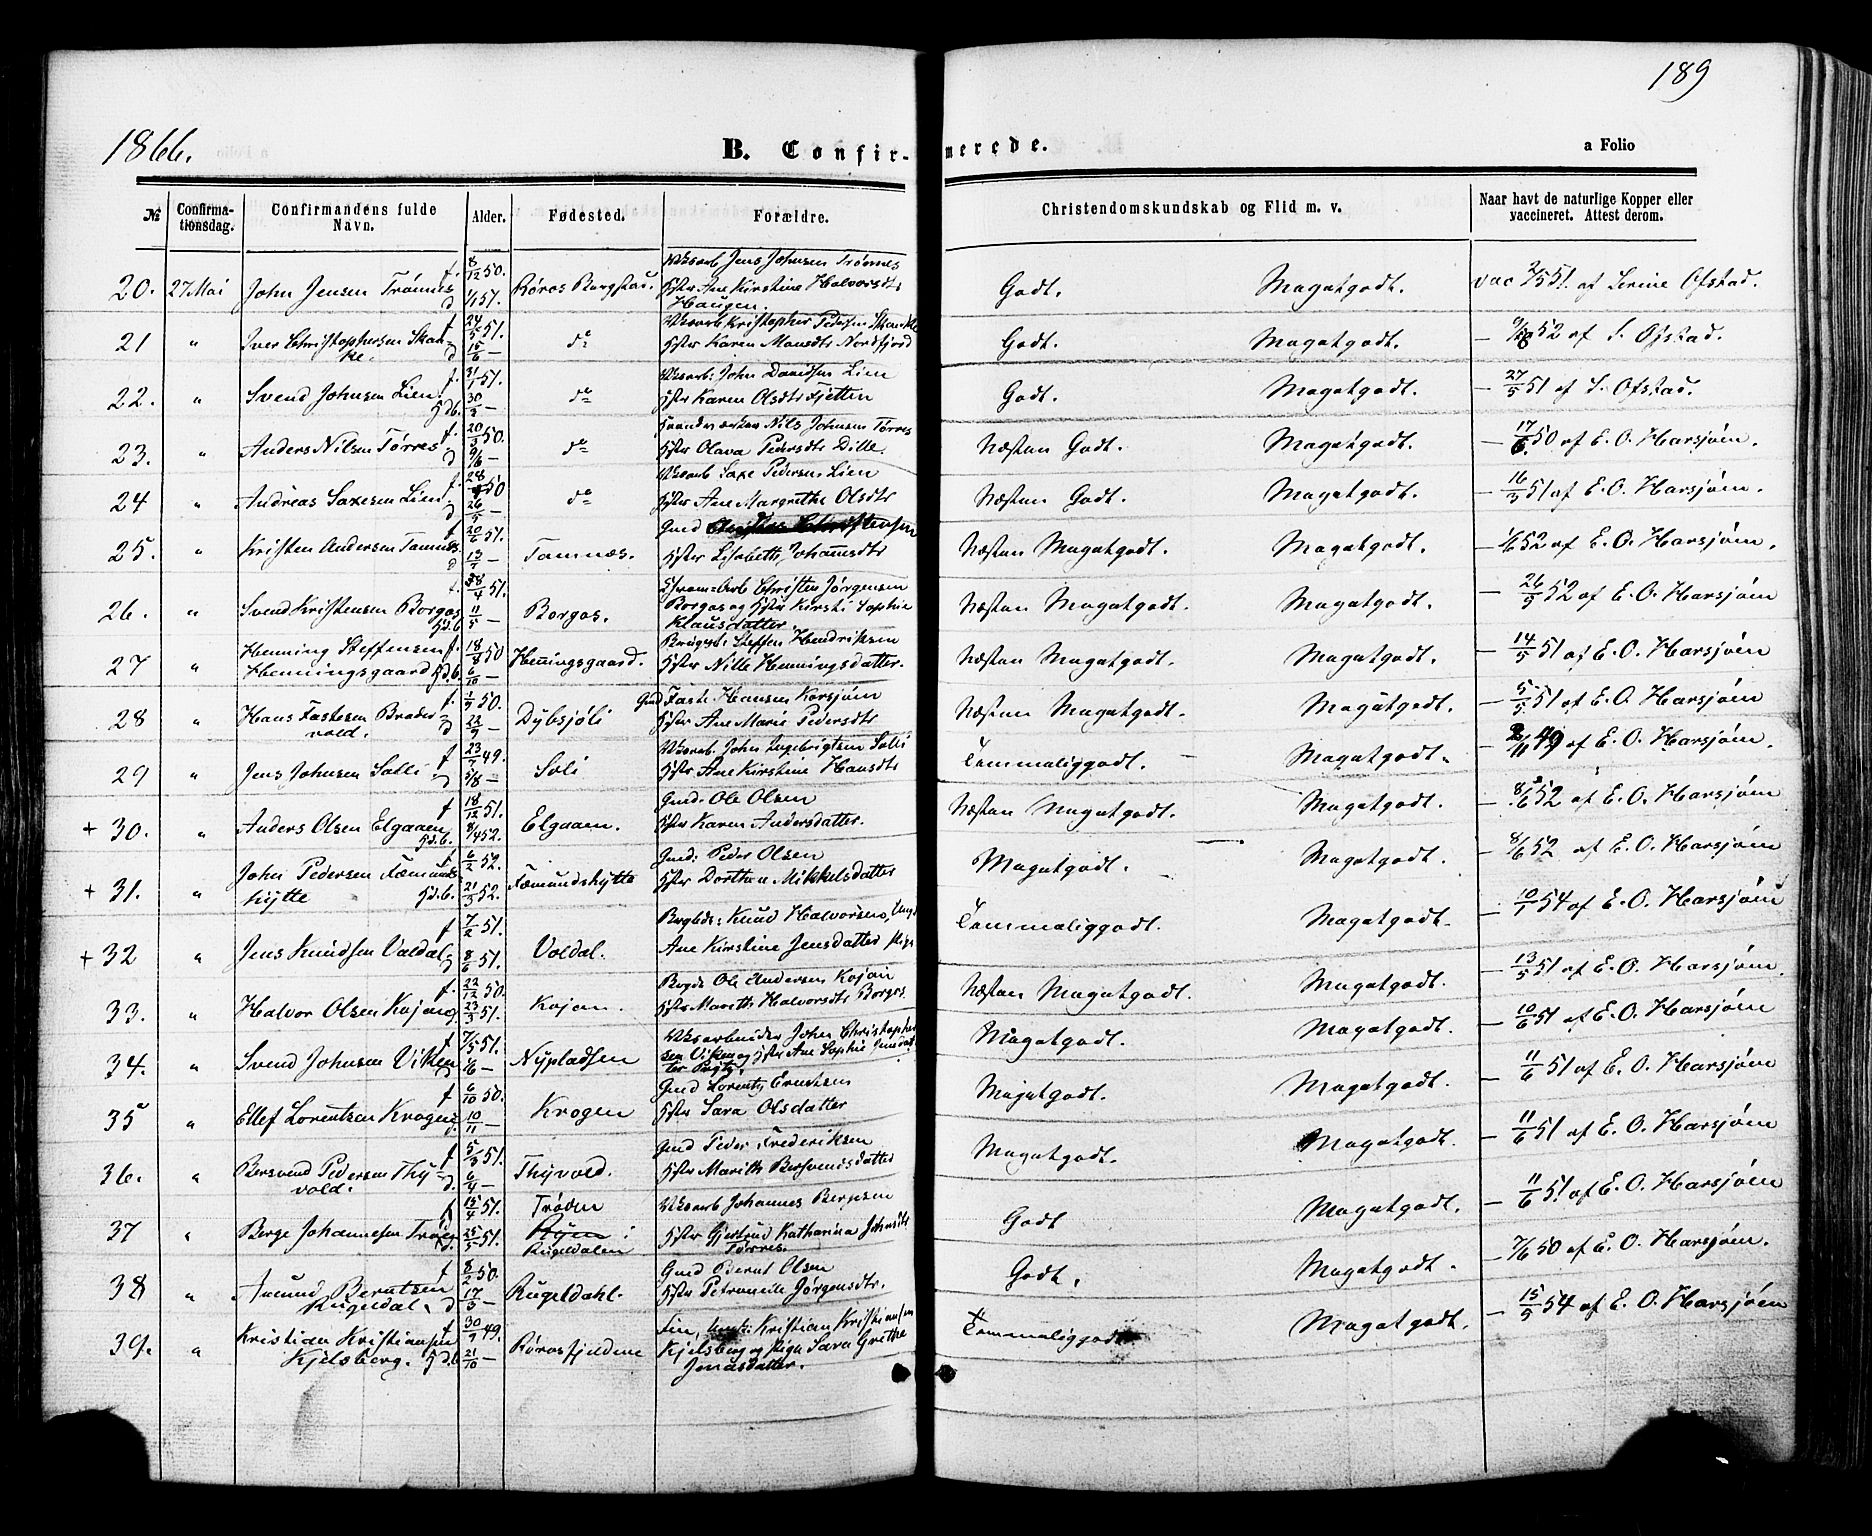 189
1866.
B. Confir-
merede.
a Folio
№
Confirma-
tionsdag.
Confirmandens fulde
Navn.
Alder.
Fødested.
Forældre.
Christendomskundskab og Flid m. v.
Naar havt de naturlige Kopper eller
vaccineret. Attest derom.
20. 27 Mai John Jensen Trønnes f. 8/12 50. d 1/1 57. Røros Bergstad. Jens Johnsen Trønnes
Hstr Ane Kirstine Halvorsdtr
Haugen. Godt. Megetgodt. vac 2/5 51. af Serine Ofstad.
21 Iver Christophersen Skan-
ke. f 24/5 51. d 15/6 — do Kristopher Pedersen Skanke
Hstr Karen Monsdtr Nordfjord Godt. Megetgodt. — 52 af S. Ofstad.
22. " Svend Johnsen Lien f. 31/1 51. Hd.b. 30/3 — do John Davidsen Lien
Hstr Karen Olsdtr Fjetten Godt. Megetgodt. — 27/5 51 af S. Ofstad.
23. " Anders Nilsen Tørres f. 20/3 50. d 9/6 — do Nils Johnsen Tørres
Hstr Olava Pedersdtr Dille. Næsten Godt. Megetgodt. — 17/6 50 af E. O. Harsjøen.
24 " Andreas Saxesen Lien f. 50 d 26/5 — do Saxe Pedersen Lien
Hstr Ane Margrethe Olsdtr Næsten Godt. Megetgodt. — 51 af E. O. Harsjøen.
25. " Kristen Andersen Tamnes f 20/6 51. d 13/7 — Tamnæs. Gmd
Hstr Lisabeth Johannesdtr Næsten Megetgodt. Megetgodt. 1/6 52 af E. O. Harsjøen.
26. " Svend Kristensen Borgos f. 28/4 51. Hd.b. 11/5 — Borgos. Christen Jørgensen
Borgos og Hstr Kirsti Sophie
Klausdatter. Næsten Megetgodt. Megetgodt. — 26/5 52 af E. O. Harsjøen
27 " Henning Steffensen
Henningsgaard f. 18/8 50 Hd.b. 6/10 — Henningsgaard. Steffen Hendriksen
Hstr Nille Henningsdatter. Næsten Megetgodt. Megetgodt. — 14/5 51 af E. O. Harsjøen
28 " Hans Fastesen Brader-
vold. f 1/9 50. d 22/9 — Dybsjøli Gmd Faste Hansen Korsjøen
Hstr Ane Marie Pedersdtr Næsten Megetgodt. Megetgodt. — 5/5 51 af E. O. Harsjøen
29 " Jens Johnsen Solli f 23/7 49. d 5/8 — Soli John Ingebrigtsen Solli
Hstr Ane Kirstine Hansdtr Temmeliggodt. — Megetgodt. — 49 af E. O. Harsjøen.
+ 30. " Anders Olsen Elgaaen f 18/12 51. Hd.b. 8/4 52. Elgaaen. Gmd. Ole Olsen
Hstr Karen Andersdatter. Næsten Megetgodt. Megetgodt. — 8/6 52 af E. O. Harsjøen
+ 31. " John Pedersen Fæmunds-
hytte f 6/2 52. Hd.b. 21/3 52. Fæmundshytte Gmd: Peder Olsen
Hstr Dorthea Mikkelsdatter Megetgodt. Megetgodt. — 8/6 52 af E. O. Harsjøen
+ 32 " Jens Knudsen Valdal f 7/2 51. d 8/6 51. Valdal. Knud Halvorsen,
Ane Kirstine Jensdatter Temmeliggodt. Megetgodt. — 10/7 54 af E. O. Harsjøen
33. " Halvor Olsen Kojan f. 22/12 50. d 23/3 51. Kojan. Ole Andersen Kojan
Hstr Mareth Halvorsdtr Borgos. Næsten Megetgodt. Megetgodt. — 13/5 51 af E. O. Harsjøen.
34. " Svend Johnsen Viken f 7/5 51. Nypladsen John Christopher-
sen Viken og Hstr Ane Sophie Megetgodt. Megetgodt. — 10/6 51 af E. O. Harsjøen
35 " Ellef Lorentsen Krogen f 6/10 50. d. 10/11 — Krogen Gmd Lorentz Erntsen
Hstr Sara Olsdatter Megetgodt. Megetgodt. — 11/6 51 af E. O. Harsjøen
36. " Bersvend Pedersen Thy-
vold. f 5/3 51. d. 6/4 — Thyvold. Gmd Peder Frederiksen
Hstr Marith Bersvendsdatter Megetgodt. Megetgodt. — 11/6 51 af E. O. Harsjøen
37 " Berge Johannesen Trøen f 15/4 51. d. 25/5 51. Trøen
Rugeldalen Johannes Bergesen
Hstr Gjertrud Katharina Johnsdtr
Tørres. Godt Megetgodt. — 11/6 51 af E. O. Harsjøen
38 " Amund Berntsen
Rugeldal. f 8/2 50. d 17/3 — Rugeldahl. Gmd Bernt Olsen
Hstr Petronelle Jørgensdtr. Godt. Megetgodt. — 7/6 50 af E. O. Harsjøen.
39. " Kristian Kristiansen
Kjelsberg. f 30/7 49. Hd.b 21/10 — Rørosfjeldene Kristian Kristiansen
Kjelsberg og Pige Sara Grethe
Jonasdatter. Temmeliggodt Megetgodt. — 15/5 54 af E. O. Harsjøen